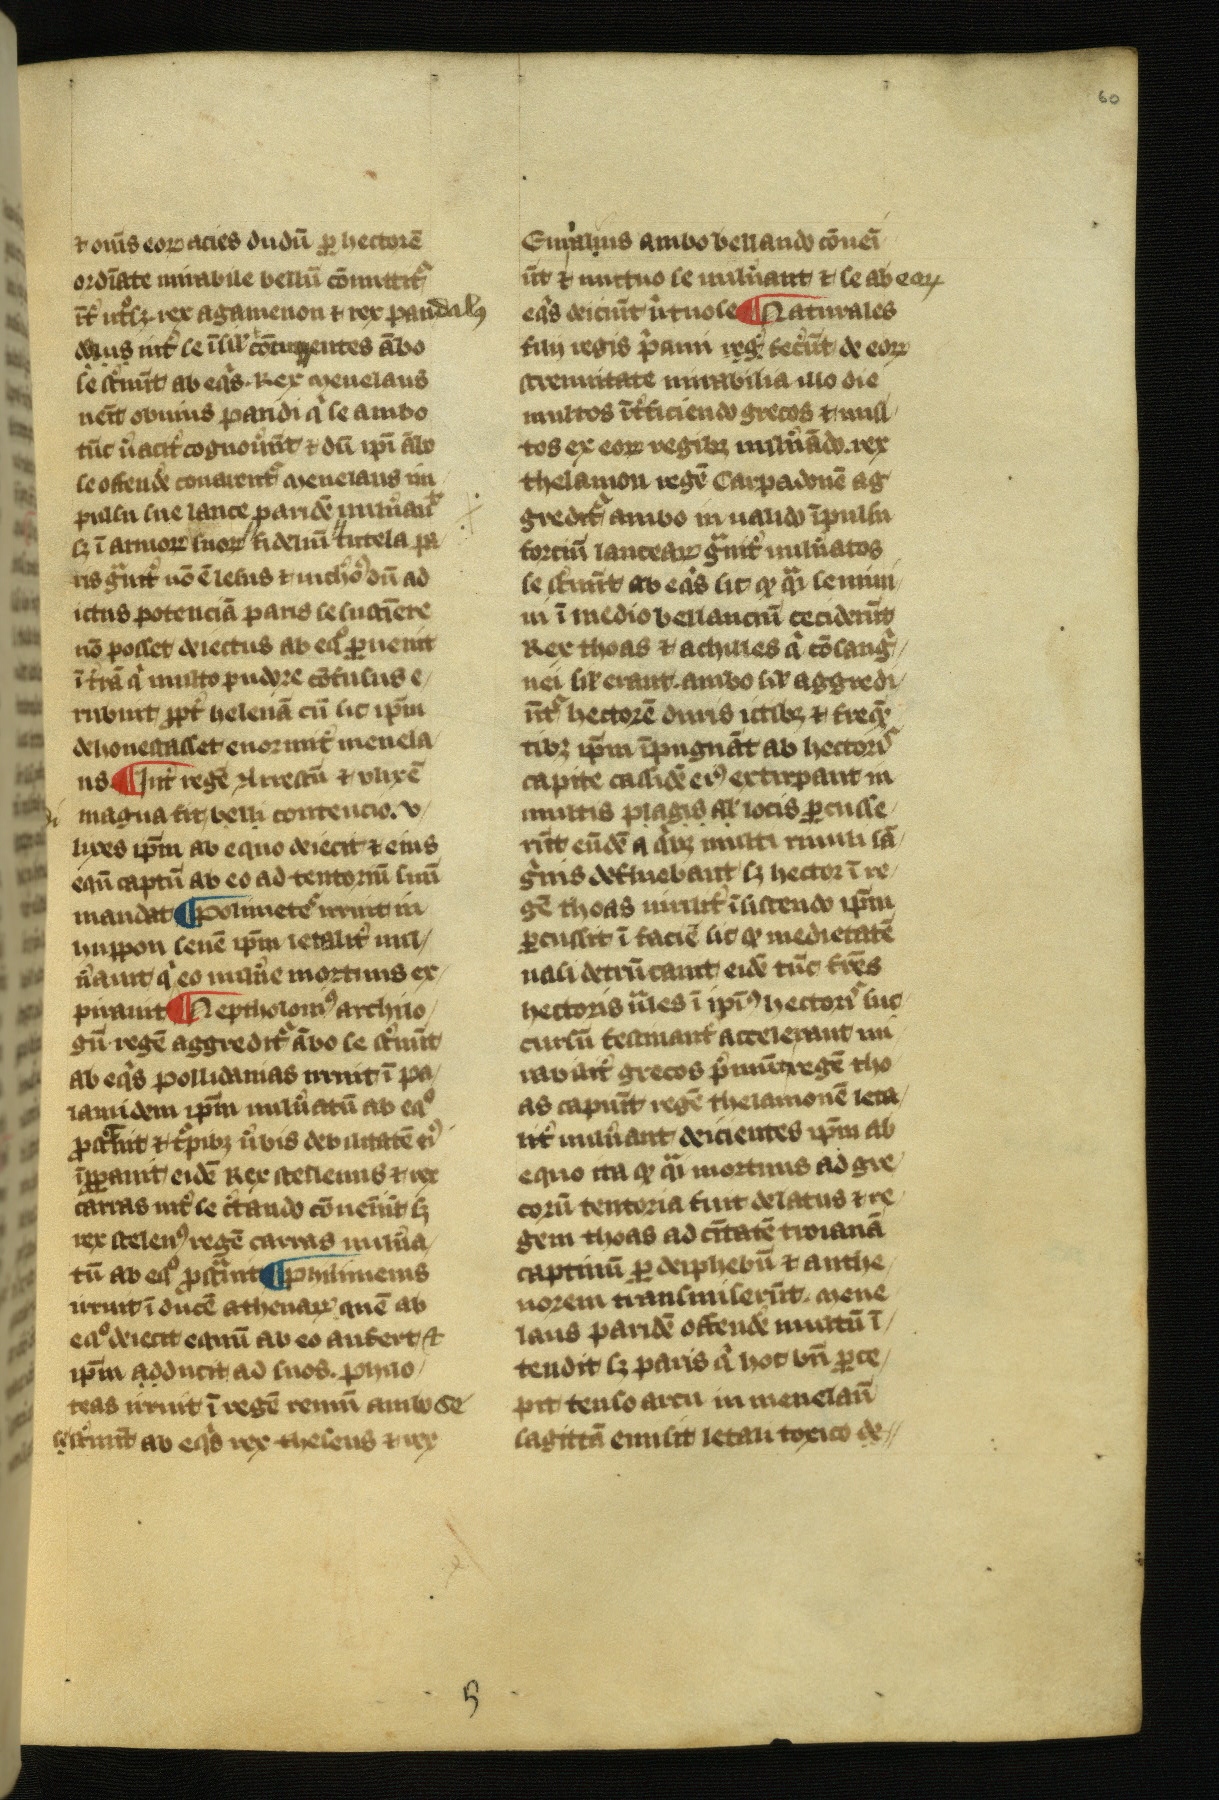 60
⁊ oīus eoꝝ acies dudū ꝑ hectorē
ordīate mirabile bellū cōmittit᷑
īt᷑ utͦsꝫ rex agamenon ⁊ rex pandalꝰ
int᷑ se ābo
se st᷑nūt ab eqͥs. Rex menelaus
ueīt obuius paridi qͥ se ambo
tūc cognou᷑ūt ⁊ dū ip̄i ābo
se offende᷑ conarent᷑ menelaus im
pulsu sue lance paridē uuln᷑auit
sꝫ ī armoꝝ suoꝝ fidelius tutela pa
ris nō ē lesus dū ad
ictus potenciā paris se sustīere
nō posset deiectus ab eqͦ ꝑuenit
ī t᷑rā qͥ multo pudore cōfusus e/
rubuit ꝓpt᷑ helenā cū sic ip̄m
dehonestasset enormit᷑ menela
us ¶ Int᷑ regē Arrestū ⁊ vlixē
magna fit belli contencio. v/
lixes ip̄m ab equo deiecit ⁊ eius
eqū captū ab eo ad tentoriū suū
mandat ¶ Polimetes irruit in
huppon senē ip̄m letalit᷑ uul/
n᷑auit qͥ eo uuln᷑e mortuus ex/
pirauit ¶ Neptholomꝰ archilo/
gū regē aggredit᷑ ābo se st᷑nūt
ab eqͥs pollidamas irruit ī pa/
lamidem ip̄m uuln᷑atū ab eqͦ
ꝓst᷑nit ⁊ t᷑pibꝫ u᷑bis debilitatē eiꝰ
īꝓꝑauit eidē Rex stelenus ⁊ rex
carras int᷑ se c᷑tando cōuen᷑ūt sꝫ
rex stelenꝰ regē carras uuln᷑a/
tū ab eqͦ ꝓst᷑auit ¶ philimenis
irruit ī ducē athenaꝝ quē ab
eqͦ deiecit equū ab eo aufert ⁊
ip̄m adducit ad suos. philo/
teas irruit ī regē remū ambo se
st᷑nūt ab eqͥs rex theseus ⁊ rex
Eurialius ambo bellando cōueī
ūt ⁊ mutuo se uuln᷑ant ⁊ se ab eoꝝ
eqͥs deiciūt ¶ Naturales
filij regis pͥami fec᷑ūt de eoꝝ
strenuitate mirabilia illo die
multos īt᷑ficiendo grecos ⁊ mul/
tos ex eoꝝ regibꝫ uuln᷑ādo. rex
thelamon regē Carpadonē ag
gredit᷑ ambo in ualido īpulsu
fortiū lanceaꝝ g᷑uit᷑ uuln᷑atos
se st᷑nūt ab eqͥs sic ꝙ qͣi semiui/
ui ī medio bellanciū cecider̄ūt
Rex thoas ⁊ achilles qͥ cōsangͥ/
nei sil᷑ erant. ambo sil᷑ aggredi/
ūt᷑ hectorē duris ictibꝫ ⁊ freqͣ̄
tibꝫ ip̄m īpugnāt ab hectoris
capite cassidē eiꝰ extirpant in
multis plagis locis ꝑcusse/
rūt eūdē a qͥbꝫ multi riuuli sā/
gͥnis defluebant sꝫ hector ī re/
gē thoas uirilit᷑ īsistendo ip̄m
ꝑcussit ī faciē sic ꝙ medietatē
nasi detrūcauit eidē tūc fr̄es
hectoris ī ipīꝰ hectoris suc
cursū festinant᷑ accelerant mi
rabilit᷑ grecos regē tho
as capiūt regē thelamonē leta/
lit᷑ uuln᷑ant deicientes ip̄m ab
equo ita ꝙ qͣi mortuus ad gre/
corū tentoria fuit delatus ⁊ re/
gem thoas ad ciͥtatē troianā
captiuū ꝑ deiphebū ⁊ anthe/
norem transmiserūt. mene
laus paridē offende᷑ multū ī/
tendit sꝫ paris qͥ hoc bn̄ ꝑce/
pit tenso arcu in menelaū
sagittā emisit letali toxico de//
5